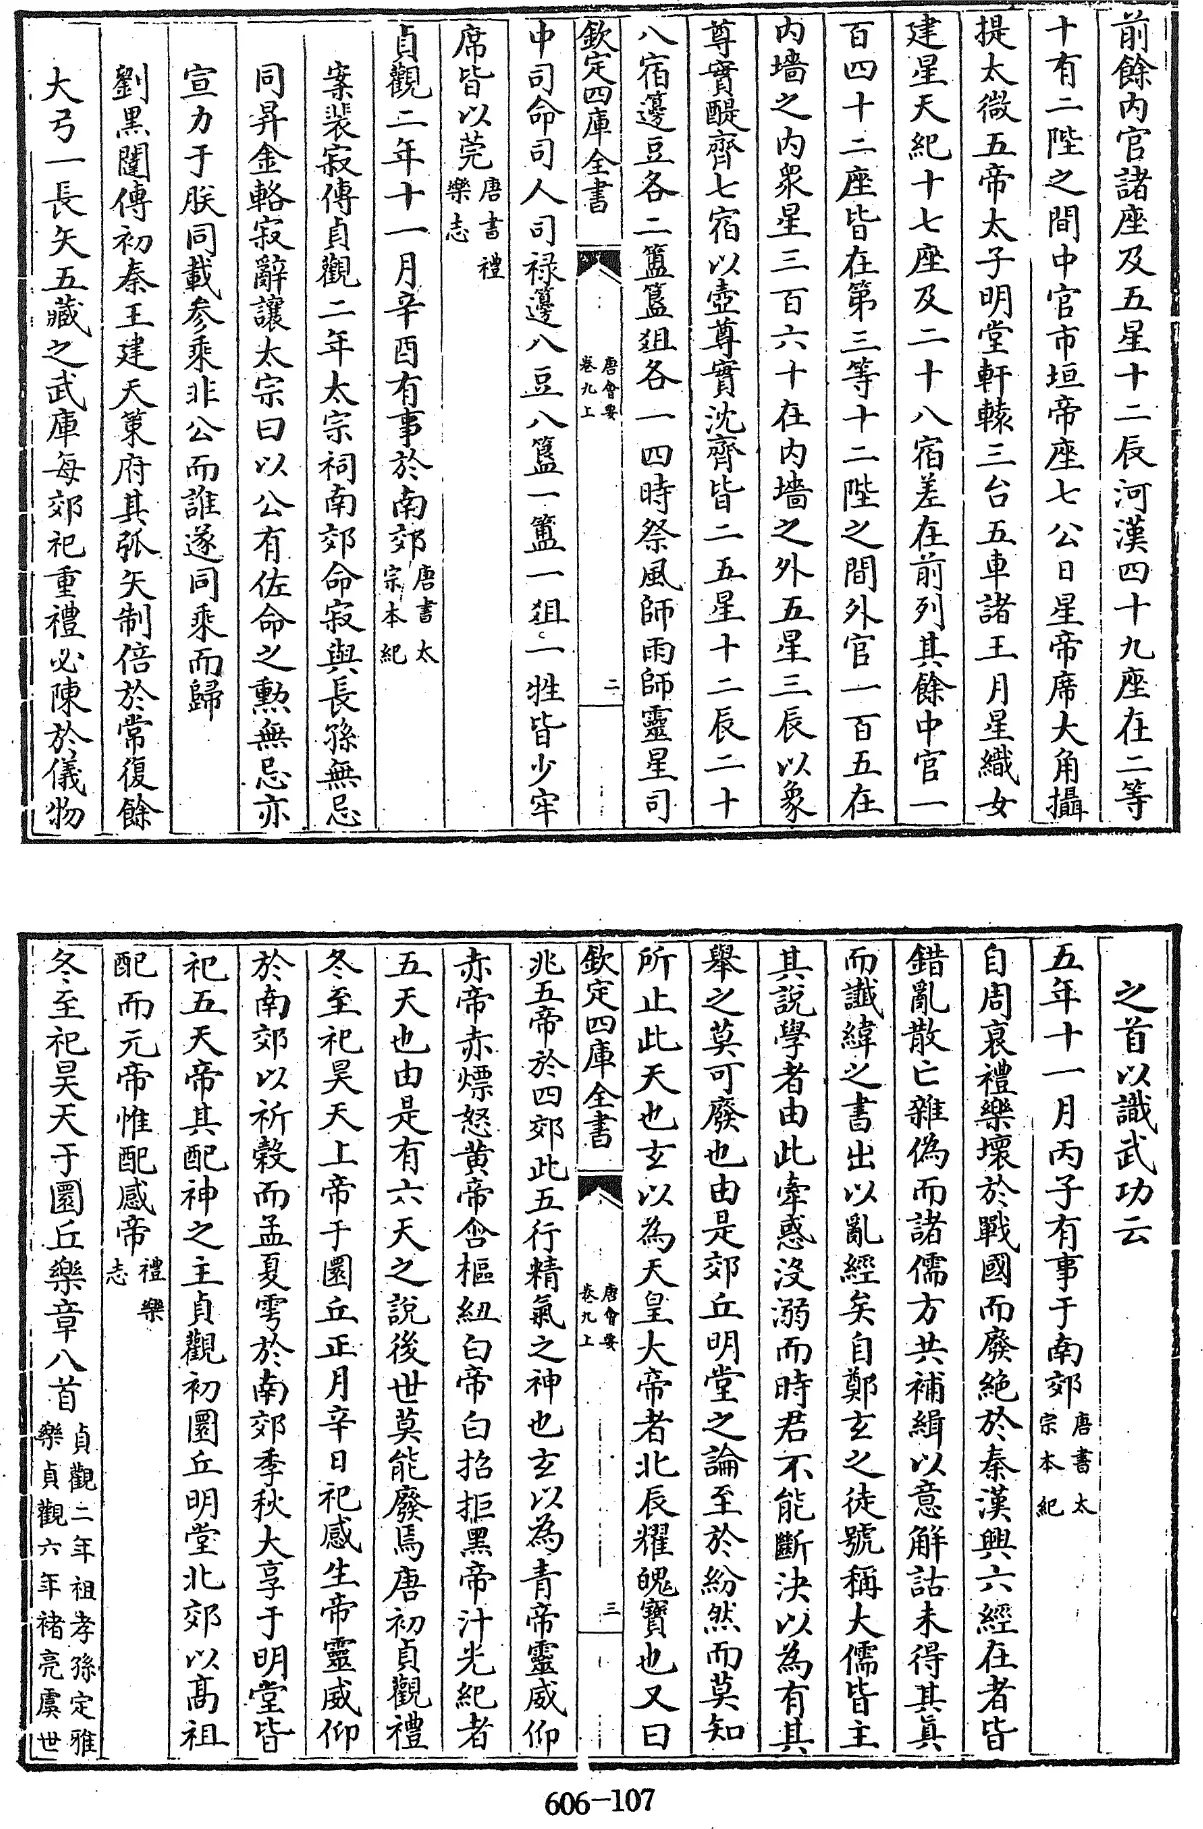 前餘内官諸座及五星十二辰河漢四十九座在二等
十有二陛之間中官市垣帝座七公日星帝席大角攝
提太微五帝太子明堂軒轅三台五車諸王月星織女
建星天紀十七座及二十八宿差在前列其餘中官一
百四十二座皆在第三等十二陛之間外官一百五在
内墻之内衆星三百六十在内墻之外五星三辰以象
尊實醍齊七宿以壺尊實沈齊皆二五星十二辰二十
八宿籩豆各二簠簋俎各一四時祭風師雨師靈星司
欽定四庫全書
唐會要
卷九上
二
中司命司人司禄籩八豆八簋一簠一俎一牲皆少牢
席皆以莞唐書禮
樂志
貞觀二年十一月辛酉有事於南郊唐書太
宗本紀
案裴寂傳貞觀二年太宗祠南郊命寂與長孫無忌
同昇金輅寂辭讓太宗曰以公有佐命之勲無忌亦
宣力于朕同載参乘非公而誰遂同乘而歸
劉黑闥傳初秦王建天策府其弧矢制倍於常復餘
大弓一長矢五藏之武庫每郊祀重禮必陳於儀物
之首以識武功云
五年十一月丙子有事于南郊唐書太
宗本紀
自周衰禮樂壞於戰國而廢絶於秦漢興六經在者皆
錯亂散亡雜偽而諸儒方共補緝以意解詁未得其真
而讖緯之書出以亂經矣自鄭玄之徒號稱大儒皆主
其說學者由此牽惑没溺而時君不能斷決以為有其
舉之莫可廢也由是郊丘明堂之論至於紛然而莫知
所止此天也玄以為天皇大帝者北辰耀魄寶也又曰
欽定四庫全書
唐會要
卷九上
三
兆五帝於四郊此五行精氣之神也玄以為青帝靈威仰
赤帝赤熛怒黄帝含樞紐白帝白招拒黑帝汁光紀者
五天也由是有六天之說後世莫能廢焉唐初貞觀禮
冬至祀昊天上帝于圜丘正月辛日祀感生帝靈威仰
於南郊以祈穀而孟夏雩於南郊季秋大享于明堂皆
祀五天帝其配神之主貞觀初圜丘明堂北郊以髙祖
配而元帝惟配感帝禮樂
志
冬至祀昊天于圜丘樂章八首貞觀二年祖孝孫定雅
樂貞觀六年禇亮虞世
606-107